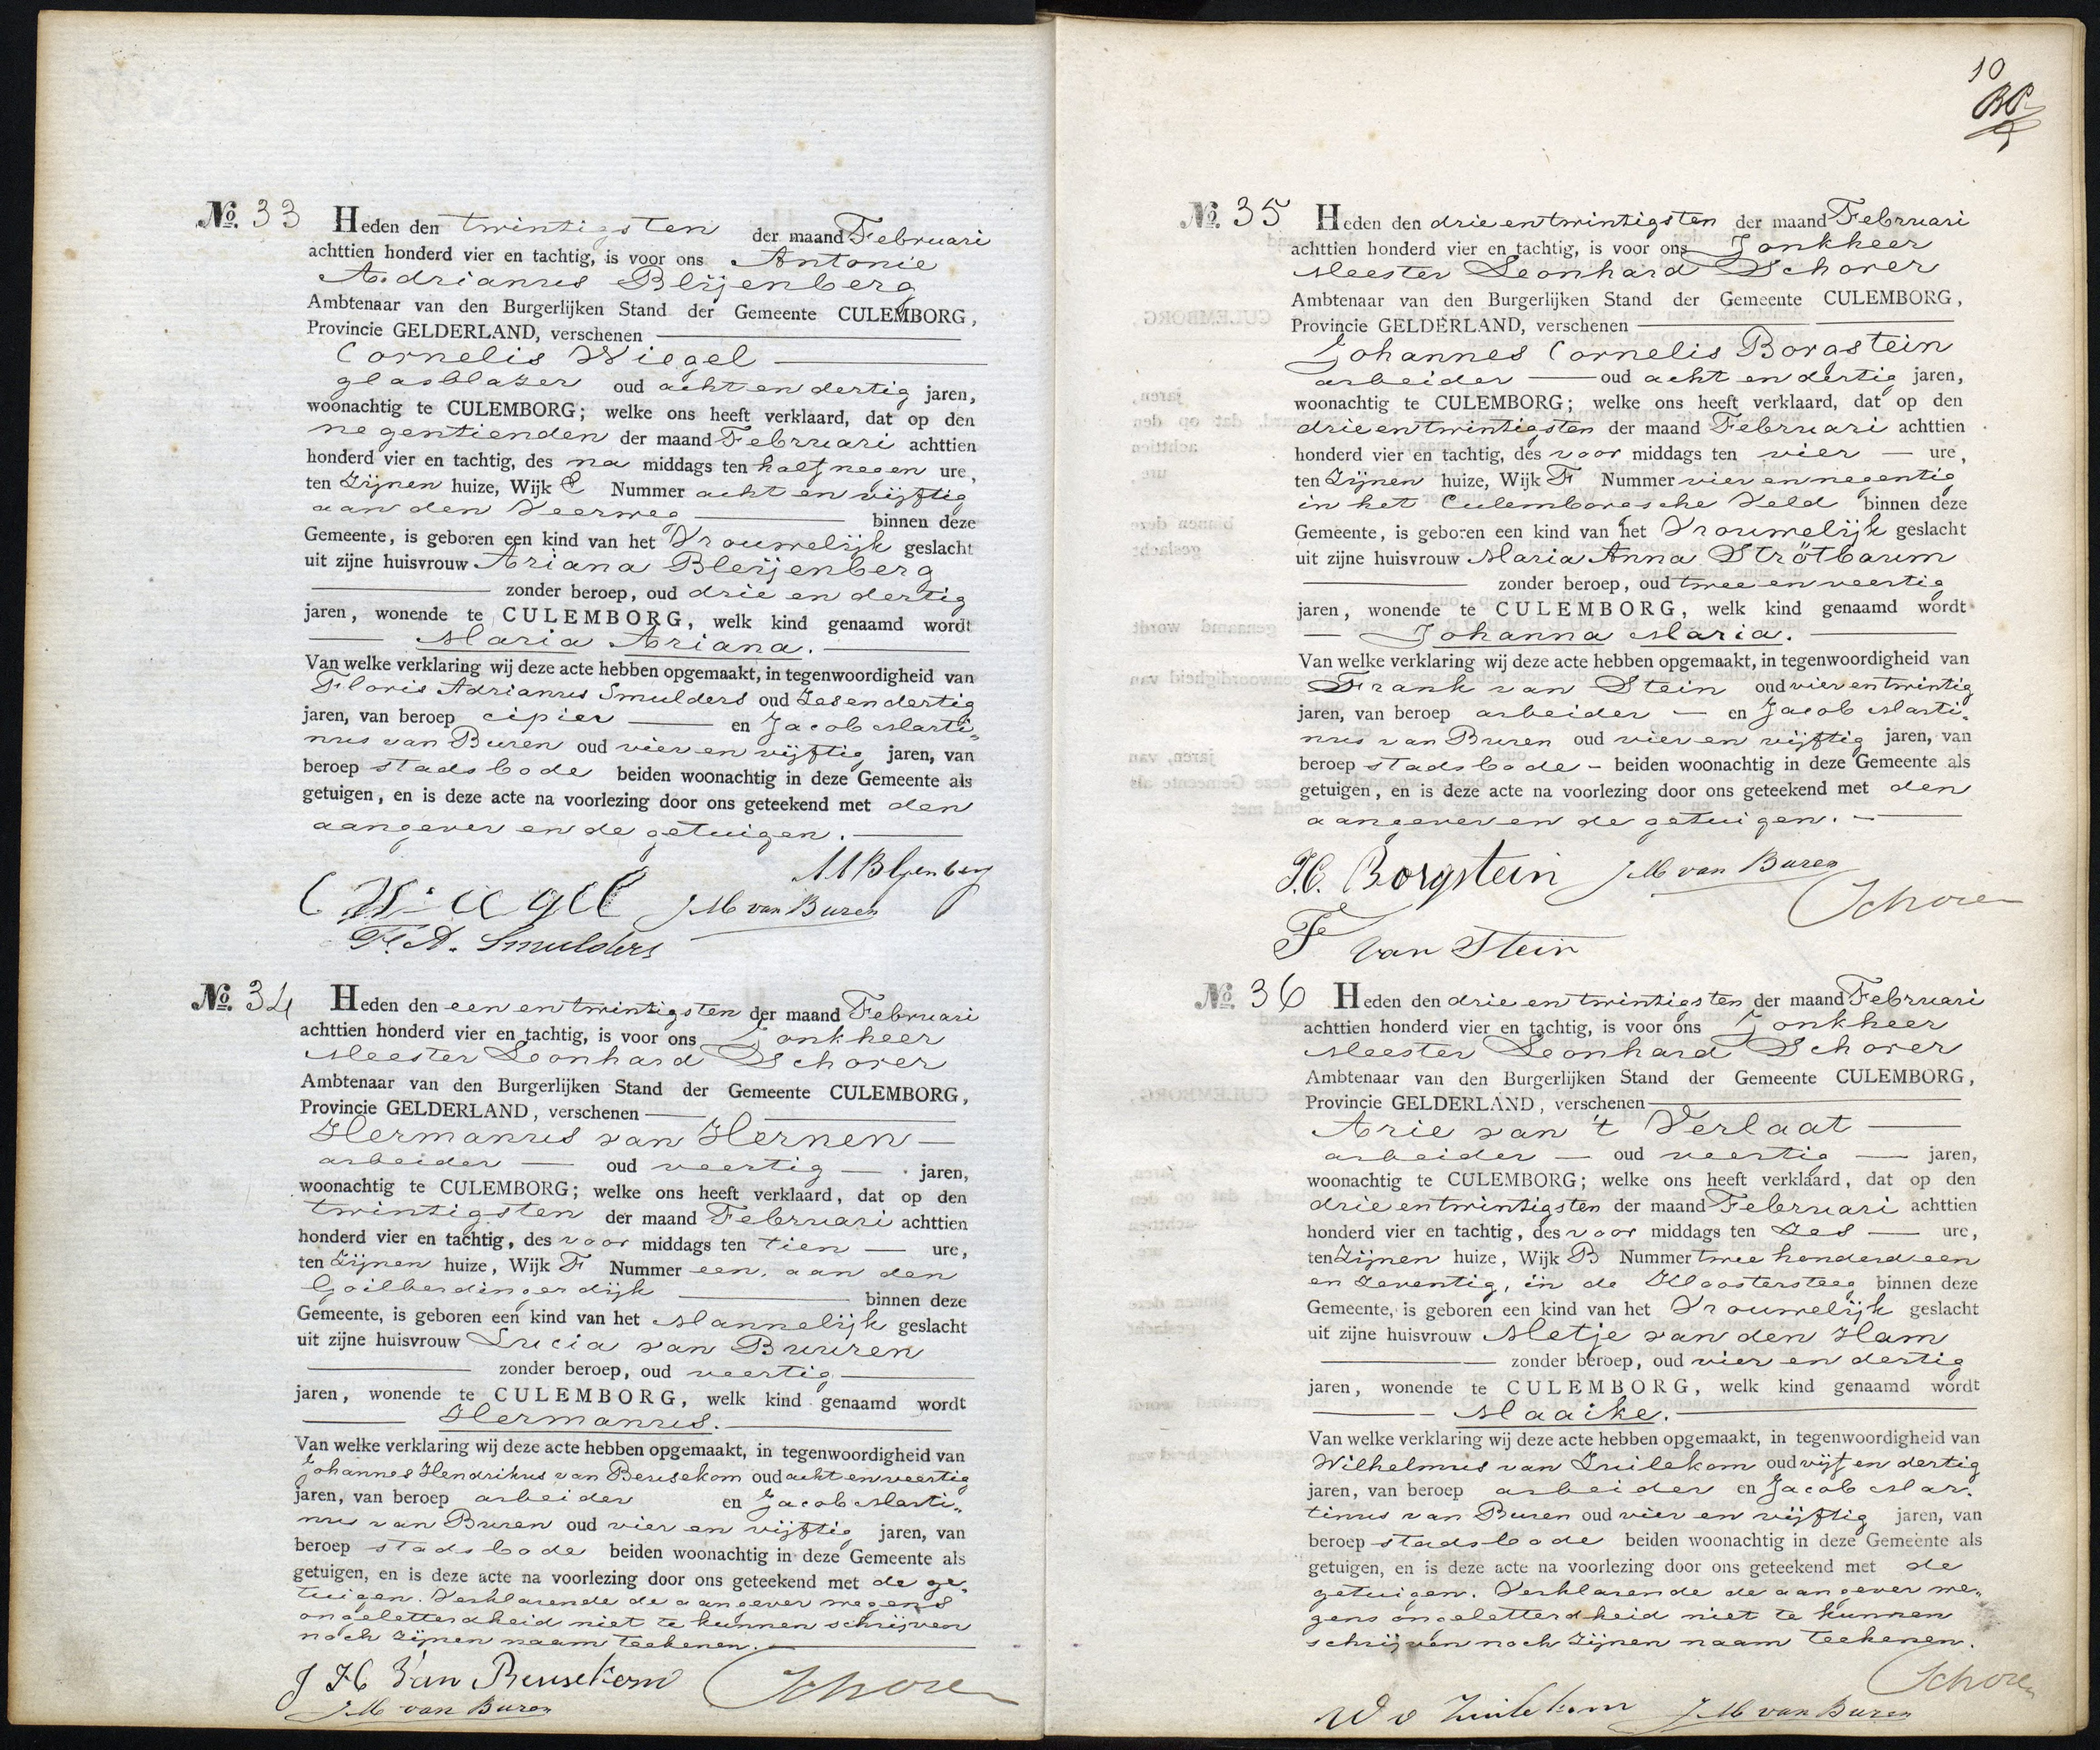 No. 33 Heden den twintigsten der maand Februari
achttien honderd vier en tachtig, is voor ons Antonie
Adrianus Bleijenberg
Ambtenaar van den Burgerlijken Stand der Gemeente CULEMBORG,
Provincie GELDERLAND, verschenen
Cornelis Wiegel
glasblazer oud acht en dertig jaren,
woonachtig te CULEMBORG; welke ons heeft verklaard, dat op den
negentienden der maand Februari achttien
honderd vier en tachtig, des na middags ten half negen ure,
ten Zijnen huize, Wijk E Nummer acht en vijftig
aan den Veerweg binnen deze
Gemeente, is geboren een kind van het Vrouwelijk geslacht
uit zijne huisvrouw Ariana Bleijenberg
zonder beroep, oud drie en dertig
jaren, wonende te CULEMBORG, welk kind genaamd wordt
Maria Ariana.
Van welke verklaring wij deze acte hebben opgemaakt, in tegenwoordigheid van
Floris Adrianus Smulders oud Zes en dertig
jaren, van beroep cipier en Jacob Marti„
nus van Buren oud vier en vijftig jaren, van
beroep stadsbode beiden woonachtig in deze Gemeente als
getuigen, en is deze acte na voorlezing door ons geteekend met den
aangever en de getuigen.
C Wiegel J M van Buren
F. A. Smulders
No. 34 Heden den een en twintigsten der maand Februari
achttien honderd vier en tachtig, is voor ons Jonkheer
Meester Leonhard Schorer
Ambtenaar van den Burgerlijken Stand der Gemeente CULEMBORG,
Provincie GELDERLAND, verschenen
Hermanus van Hernen
arbeider oud veertig jaren,
woonachtig te CULEMBORG; welke ons heeft verklaard, dat op den
twintigsten der maand Februari achttien
honderd vier en tachtig, des voor middags ten tien ure,
ten Zijnen huize, Wijk F Nummer een, aan den
Goilberdingerdijk binnen deze
Gemeente, is geboren een kind van het Mannelijk geslacht
uit zijne huisvrouw Lucia van Buuren
zonder beroep, oud veertig
jaren, wonende te CULEMBORG, welk kind genaamd wordt
Hermanus.
Van welke verklaring wij deze acte hebben opgemaakt, in tegenwoordigheid van
Johannes Hendrikus van Beusekom oud acht en veertig
jaren, van beroep arbeider en Jacob Marti„
nus van Buren oud vier en vijftig jaren, van
beroep stadsbode beiden woonachtig in deze Gemeente als
getuigen, en is deze acte na voorlezing door ons geteekend met de ge„
tuigen. Verklarende de aangever wegens
ongeletterdheid niet te kunnen schrijven
noch zijnen naam teekenen.
J H Van Beusekom Schorer
J. M van Buren
10
No. 35 Heden den drie en twintigsten der maand Februari
achttien honderd vier en tachtig, is voor ons Jonkheer
Meester Leonhard Schorer
Ambtenaar van den Burgerlijken Stand der Gemeente CULEMBORG,
Provincie GELDERLAND, verschenen
Johannes Cornelis Borgstein
arbeider oud acht en dertig jaren,
woonachtig te CULEMBORG; welke ons heeft verklaard, dat op den
drie en twintigsten der maand Februari achttien
honderd vier en tachtig, des voor middags ten vier ure,
ten Zijnen huize, Wijk F Nummer vier en negentig
in het Culemborgsche Veld binnen deze
Gemeente, is geboren een kind van het Vrouwelijk geslacht
uit zijne huisvrouw Maria Anna Strötbaum
zonder beroep, oud twee en veertig
jaren, wonende te CULEMBORG, welk kind genaamd wordt
Johanna Maria.
Van welke verklaring wij deze acte hebben opgemaakt, in tegenwoordigheid van
Frank van Stein oud vier en twintig
jaren, van beroep arbeider en Jacob Marti„
nus van Buren oud vier en vijftig jaren, van
beroep stadsbode beiden woonachtig in deze Gemeente als
getuigen, en is deze acte na voorlezing door ons geteekend met den
aangever en de getuigen.
J. C. Borgstein J M van Buren
Schorer
F van Stein
No. 36 Heden den drie en twintigsten der maand Februari
achttien honderd vier en tachtig, is voor ons Jonkheer
Meester Leonhard Schorer
Ambtenaar van den Burgerlijken Stand der Gemeente CULEMBORG,
Provincie GELDERLAND, verschenen
Arie van 't Verlaat
arbeider oud veertig jaren,
woonachtig te CULEMBORG; welke ons heeft verklaard, dat op den
drie en twintigsten der maand Februari achttien
honderd vier en tachtig, des voor middags ten Zes ure,
ten Zijnen huize, Wijk B Nummer twee honderd een
en Zeventig, in de Kloostersteeg binnen deze
Gemeente, is geboren een kind van het Vrouwelijk geslacht
uit zijne huisvrouw Metje van den Ham
zonder beroep, oud vier en dertig
jaren, wonende te CULEMBORG, welk kind genaamd wordt
Maaike.
Van welke verklaring wij deze acte hebben opgemaakt, in tegenwoordigheid van
Wilhelmus van Zuilekom oud vijf en dertig
jaren, van beroep arbeider en Jacob Mar„
tinus van Buren oud vier en vijftig jaren, van
beroep stadsbode beiden woonachtig in deze Gemeente als
getuigen, en is deze acte na voorlezing door ons geteekend met de
getuigen. Verklarende de aangever we„
gens ongeletterdheid niet te kunnen
schrijven noch zijnen naam teekenen.
Schorer
W v Zuilekom J. M van Buren